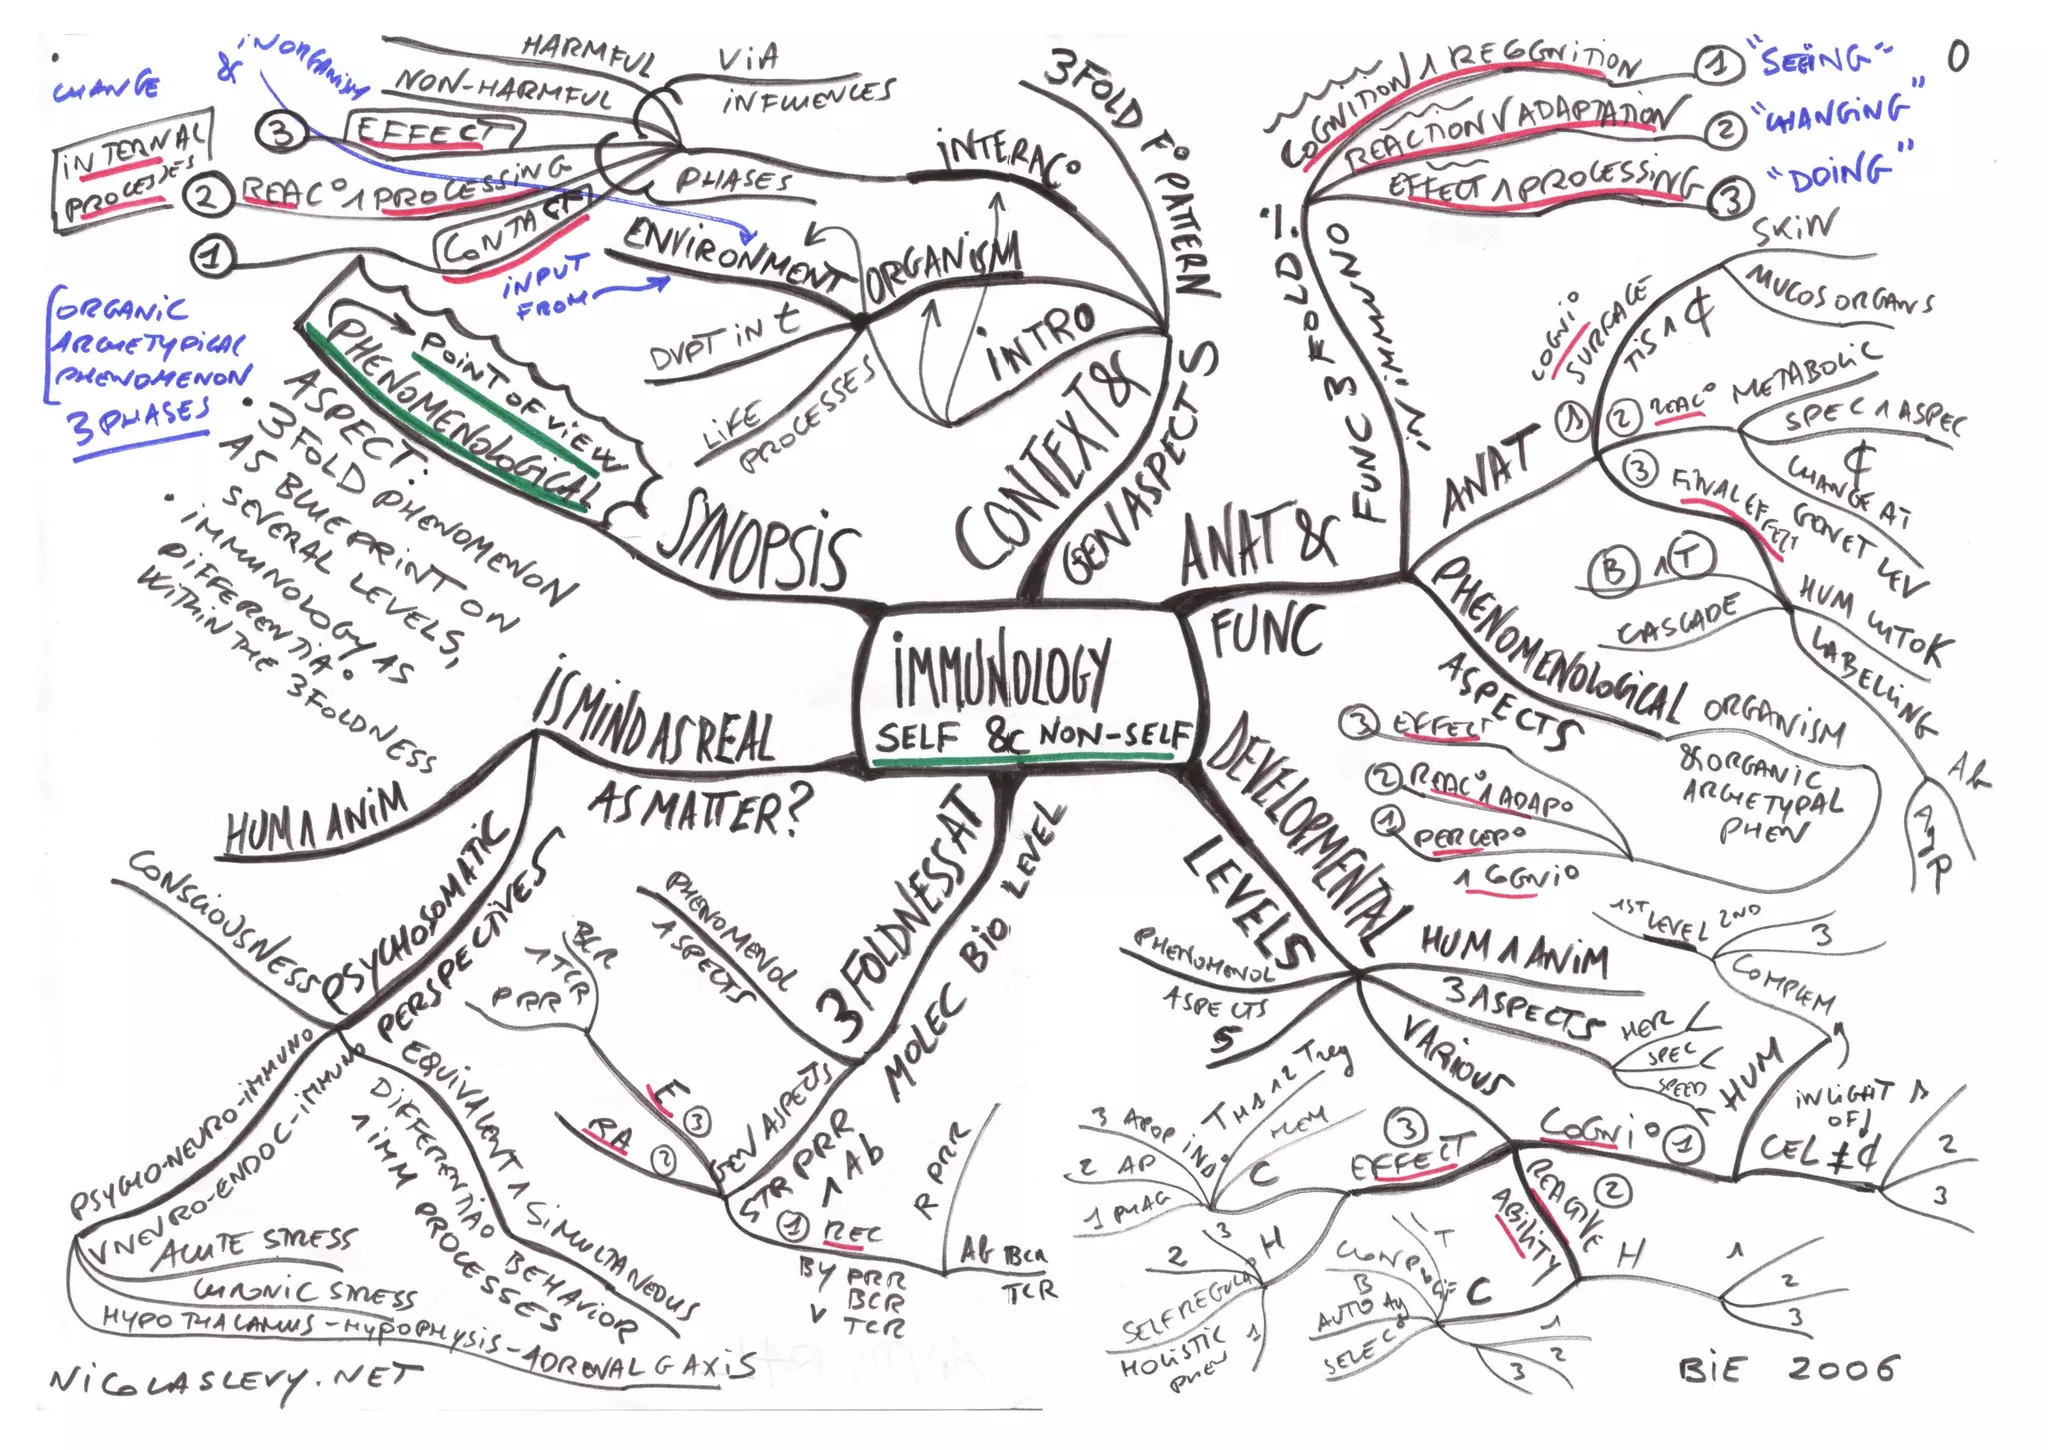 IMMUNOLOGY
SELF & NON-SELF
SYNOPSIS
POINT OF VIEW
PHENOMENOLOGICAL
ASPECT:
• 3FOLD PHENOMENON
AS BLUEPRINT ON
SEVERAL LEVELS,
• IMMUNOLOGY AS
DIFFERENTIA°
WITHIN THE 3FOLDNESS
CONTEXT &
GEN ASPECTS
3FOLD F° PATTERN
INTRO
ORGANISM
ENVIRONMENT
DVPT IN t
LIFE
PROCESSES
INPUT
FROM
INTERAC°
VIA
INFLUENCES
HARMFUL
NON-HARMFUL
PHASES
③ EFFECT
② REAC° ∧ PROCESSING
① CONTACT
IN ORGANISM
&
CHANGE
INTERNAL
PROCESSES
ORGANIC
ARCHETYPICAL
PHENOMENON
3 PHASES
ANAT &
FUNC
FUNC 3 FOLD!
COGNITION ∧ RECOGNITION ① "SEEING"
REACTION ∨ ADAPTATION ② "CHANGING"
EFFECT ∧ PROCESSING ③ "DOING"
0
ANAT
① COGNI°
SURFACE
TIS ∧ ₵
SKIN
MUCOS ORGANS
② REAC°
METABOLIC
SPEC ∧ ASPEC
₵
CHANGE AT
GENET LEV
③ FINAL EFFECT
HUM CYTOK
B ∧ T
CASCADE
LABELLING
Ab
AgP
PHENOMENOLOGICAL
ASPECTS
ORGANISM
& ORGANIC
ARCHETYPAL
PHEN
③ EFFECT
② REAC° ∧ ADAP°
① PERCEP°
∧ COGNI°
DEVELOPMENTAL
LEVELS
HUM ∧ ANIM
3 ASPECTS
HER
SPEC
SPEED
PHENOMENOL
ASPECTS
5
VARIOUS
COGNI° ①
HUM
COMPLEM
1ST LEVEL 2ND
3
IN LIGHT
OF
CEL ≠ ₵
2
3
② REACTIVE
ABILITY
H
1
2
3
C
1
2
3
SELEC°
AUTO Ag
B
T
③
EFFECT
C
IND°
TH 1 2 Treg
MEM
3 APOP
2 AP
1 PHAG
H
3
2
1
SELF REGULA°
HOLISTIC
PHEN
3FOLDNESS AT
MOLEC BIO LEVEL
PHENOMENOL
ASPECTS
GEN ASPECTS
E ③
PRR
∧ TCR
BCR
RA ②
STR PRR
∧ Ab
① REC
BY PRR
BCR
∨ TCR
R PRR
Ab BCR
TCR
IS MIND AS REAL
AS MATTER?
HUM ∧ ANIM
PSYCHOSOMATIC
PERSPECTIVES
CONSCIOUSNESS
EQUIVALENT ∧ SIMULTANEOUS
DIFFERENTIA° BEHAVIOR
∧ IMM PROCESSES
PSYCHO-NEURO-IMMUNO
∨ NEURO-ENDOC-IMMUNO
ACUTE STRESS
CHRONIC STRESS
HYPOTHALAMUS-HYPOPHYSIS-ADRENAL G AXIS
NICOLASLEVY.NET
BIE 2006